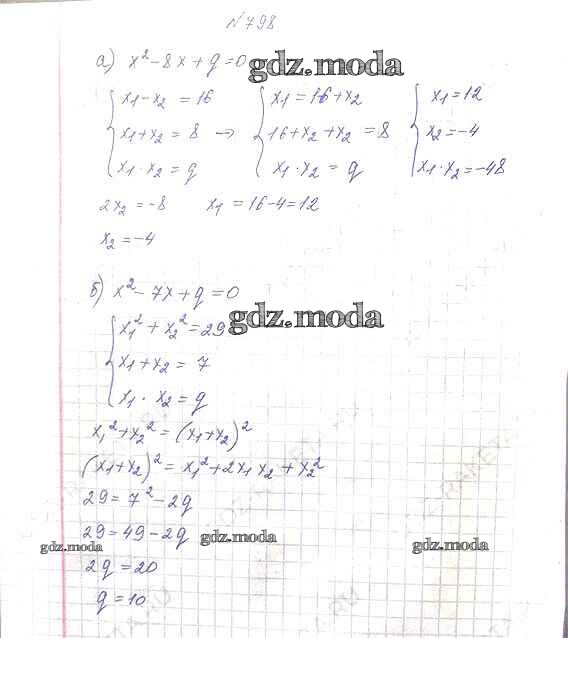 №798
а) x² - 8x + q = 0 gdz.moda
{ x₁ - x₂ = 16 { x₁ = 16 + x₂ { x₁ = 12
x₁ + x₂ = 8 → 16 + x₂ + x₂ = 8 x₂ = -4
x₁ · x₂ = q x₁ · x₂ = q x₁ · x₂ = -48
2x₂ = -8 x₁ = 16 - 4 = 12
x₂ = -4
б) x² - 7x + q = 0
{ x₁² + x₂² = 29 gdz.moda
x₁ + x₂ = 7
x₁ · x₂ = q
x₁² + x₂² = (x₁ + x₂)²
(x₁ + x₂)² = x₁² + 2x₁x₂ + x₂²
29 = 7² - 2q
29 = 49 - 2q
gdz.moda gdz.moda gdz.moda
2q = 20
q = 10